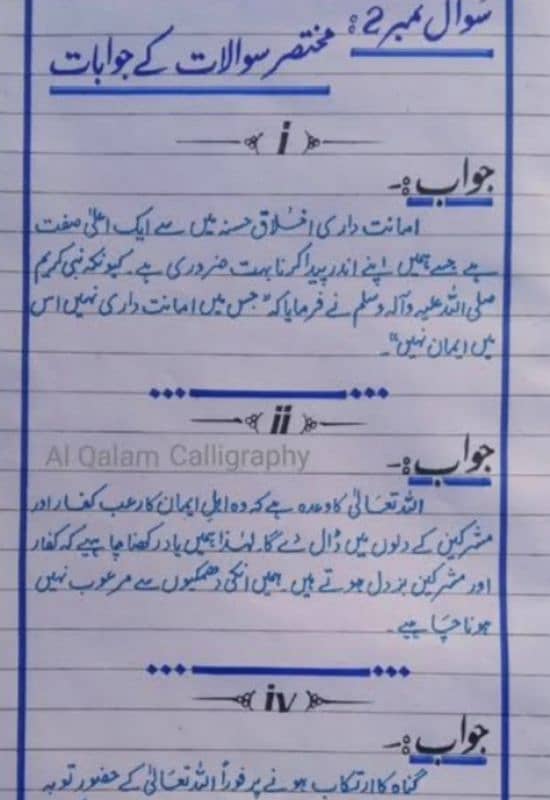 سوال نمبر 2:
مختصر سوالات کے جوابات
i
جواب:-
امانت داری اخلاق حسنہ میں سے ایک اعلیٰ صفت
ہے جسے ہمیں اپنے اندر پیدا کرنا بہت ضروری ہے۔ کیونکہ نبی کریم
صلی اللہ علیہ وآلہ وسلم نے فرمایا کہ "جس میں امانت داری نہیں اس
میں ایمان نہیں"۔
ii
Al Qalam Calligraphy
جواب:-
اللہ تعالیٰ کا وعدہ ہے کہ وہ اہل ایمان کا رعب کفار اور
مشرکین کے دلوں میں ڈال دے گا۔ لہٰذا ہمیں یاد رکھنا چاہیے کہ کفار
اور مشرکین بزدل ہوتے ہیں۔ ہمیں انکی دھمکیوں سے مرعوب نہیں
ہونا چاہیے۔
iv
جواب:-
گناہ کا ارتکاب ہونے پر فوراً اللہ تعالیٰ کے حضور توبہ